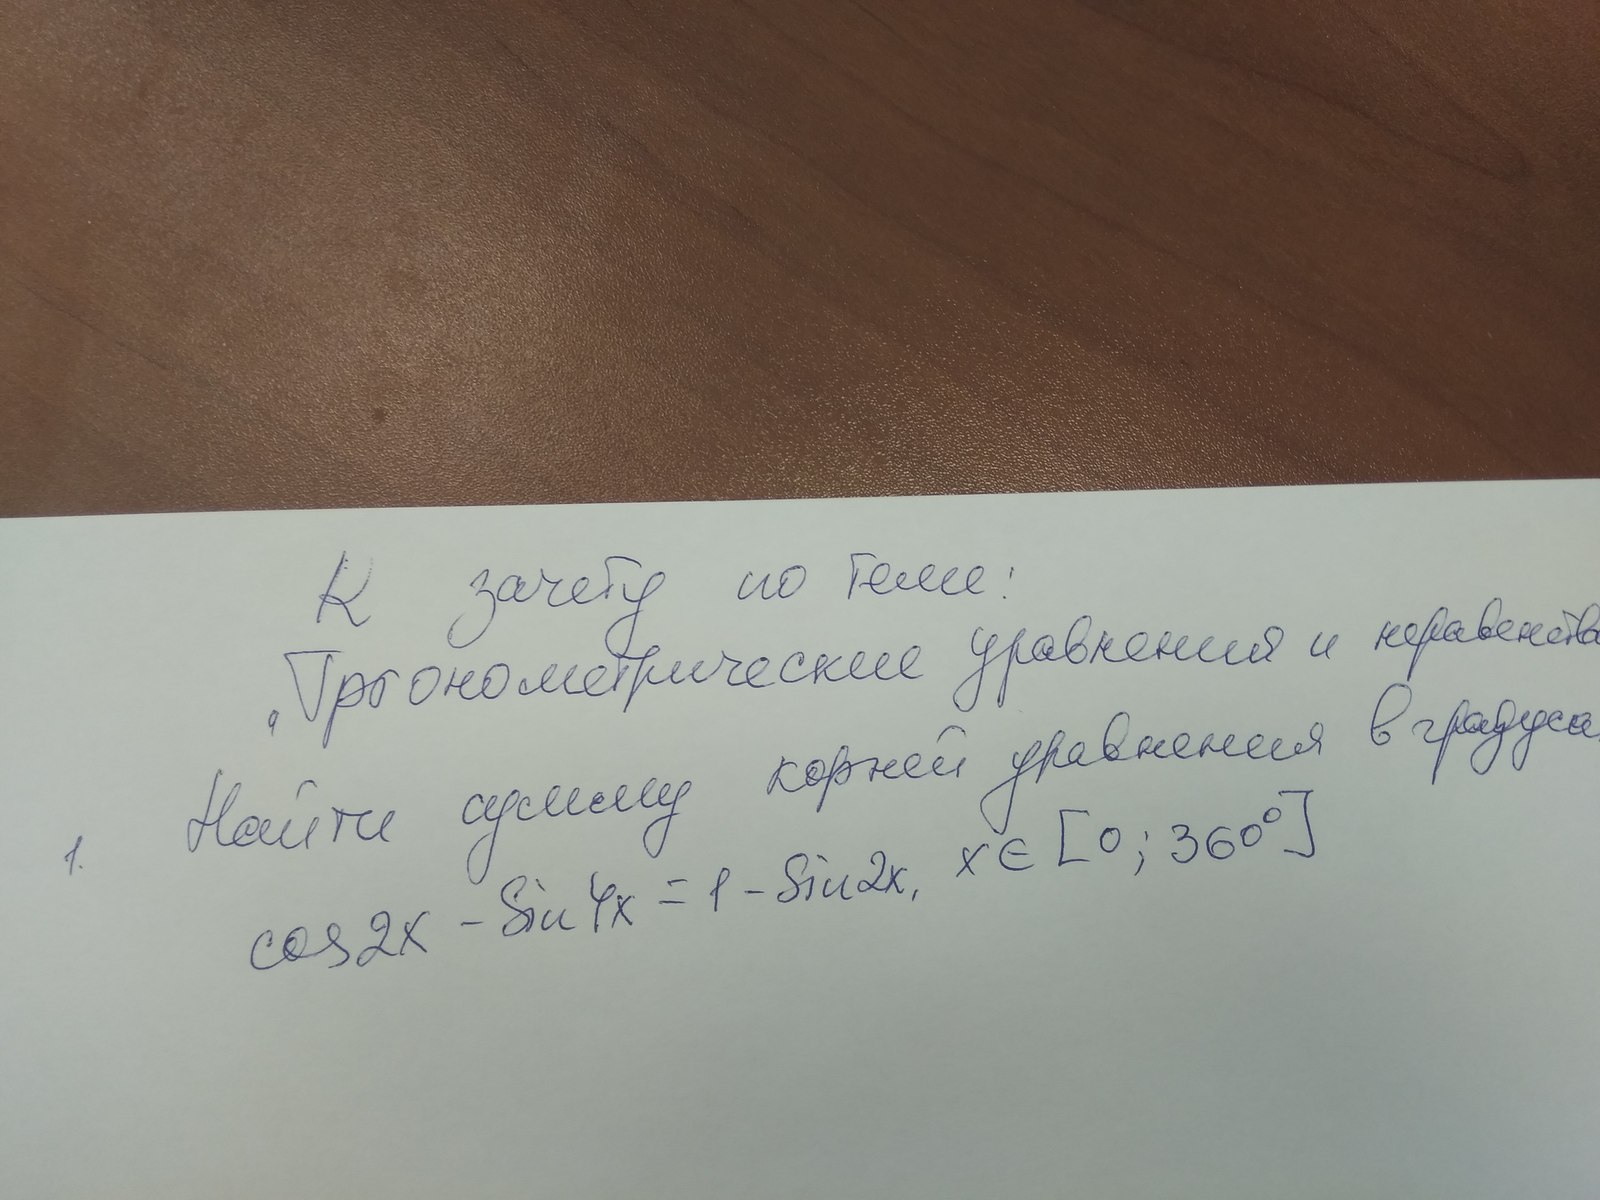 К зачету по теме:
"Тргонометрические уравнения и неравенства
1. Найти сумму корней уравнения в градуса
cos2x - Sin4x = 1 - Sin2x, x ∈ [0; 360°]